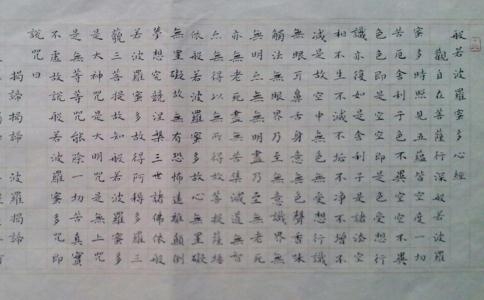 般若波羅蜜多心經
觀自在菩薩行深般若波羅
蜜多時照見五蘊皆空度一切
苦厄舍利子色不異空空不異
色色即是空空即是色受想行
識亦復如是舍利子是諸法空
相不生不滅不垢不淨不增不
減是故空中無色無受想行識
無眼耳鼻舌身意無色聲香味
觸法無眼界乃至無意識界無
無明亦無無明盡乃至無老死
亦無老死盡無苦集滅道無智
亦無得以無所得故菩提薩埵
依般若波羅蜜多故心無罣礙
無罣礙故無有恐怖遠離顛倒
夢想究竟涅槃三世諸佛依般
若波羅蜜多故得阿耨多羅三
藐三菩提故知般若波羅蜜多
是大神咒是大明咒是無上咒
是無等等咒能除一切苦真實
不虛故說般若波羅蜜多咒即
說咒曰
揭諦揭諦 波羅揭諦